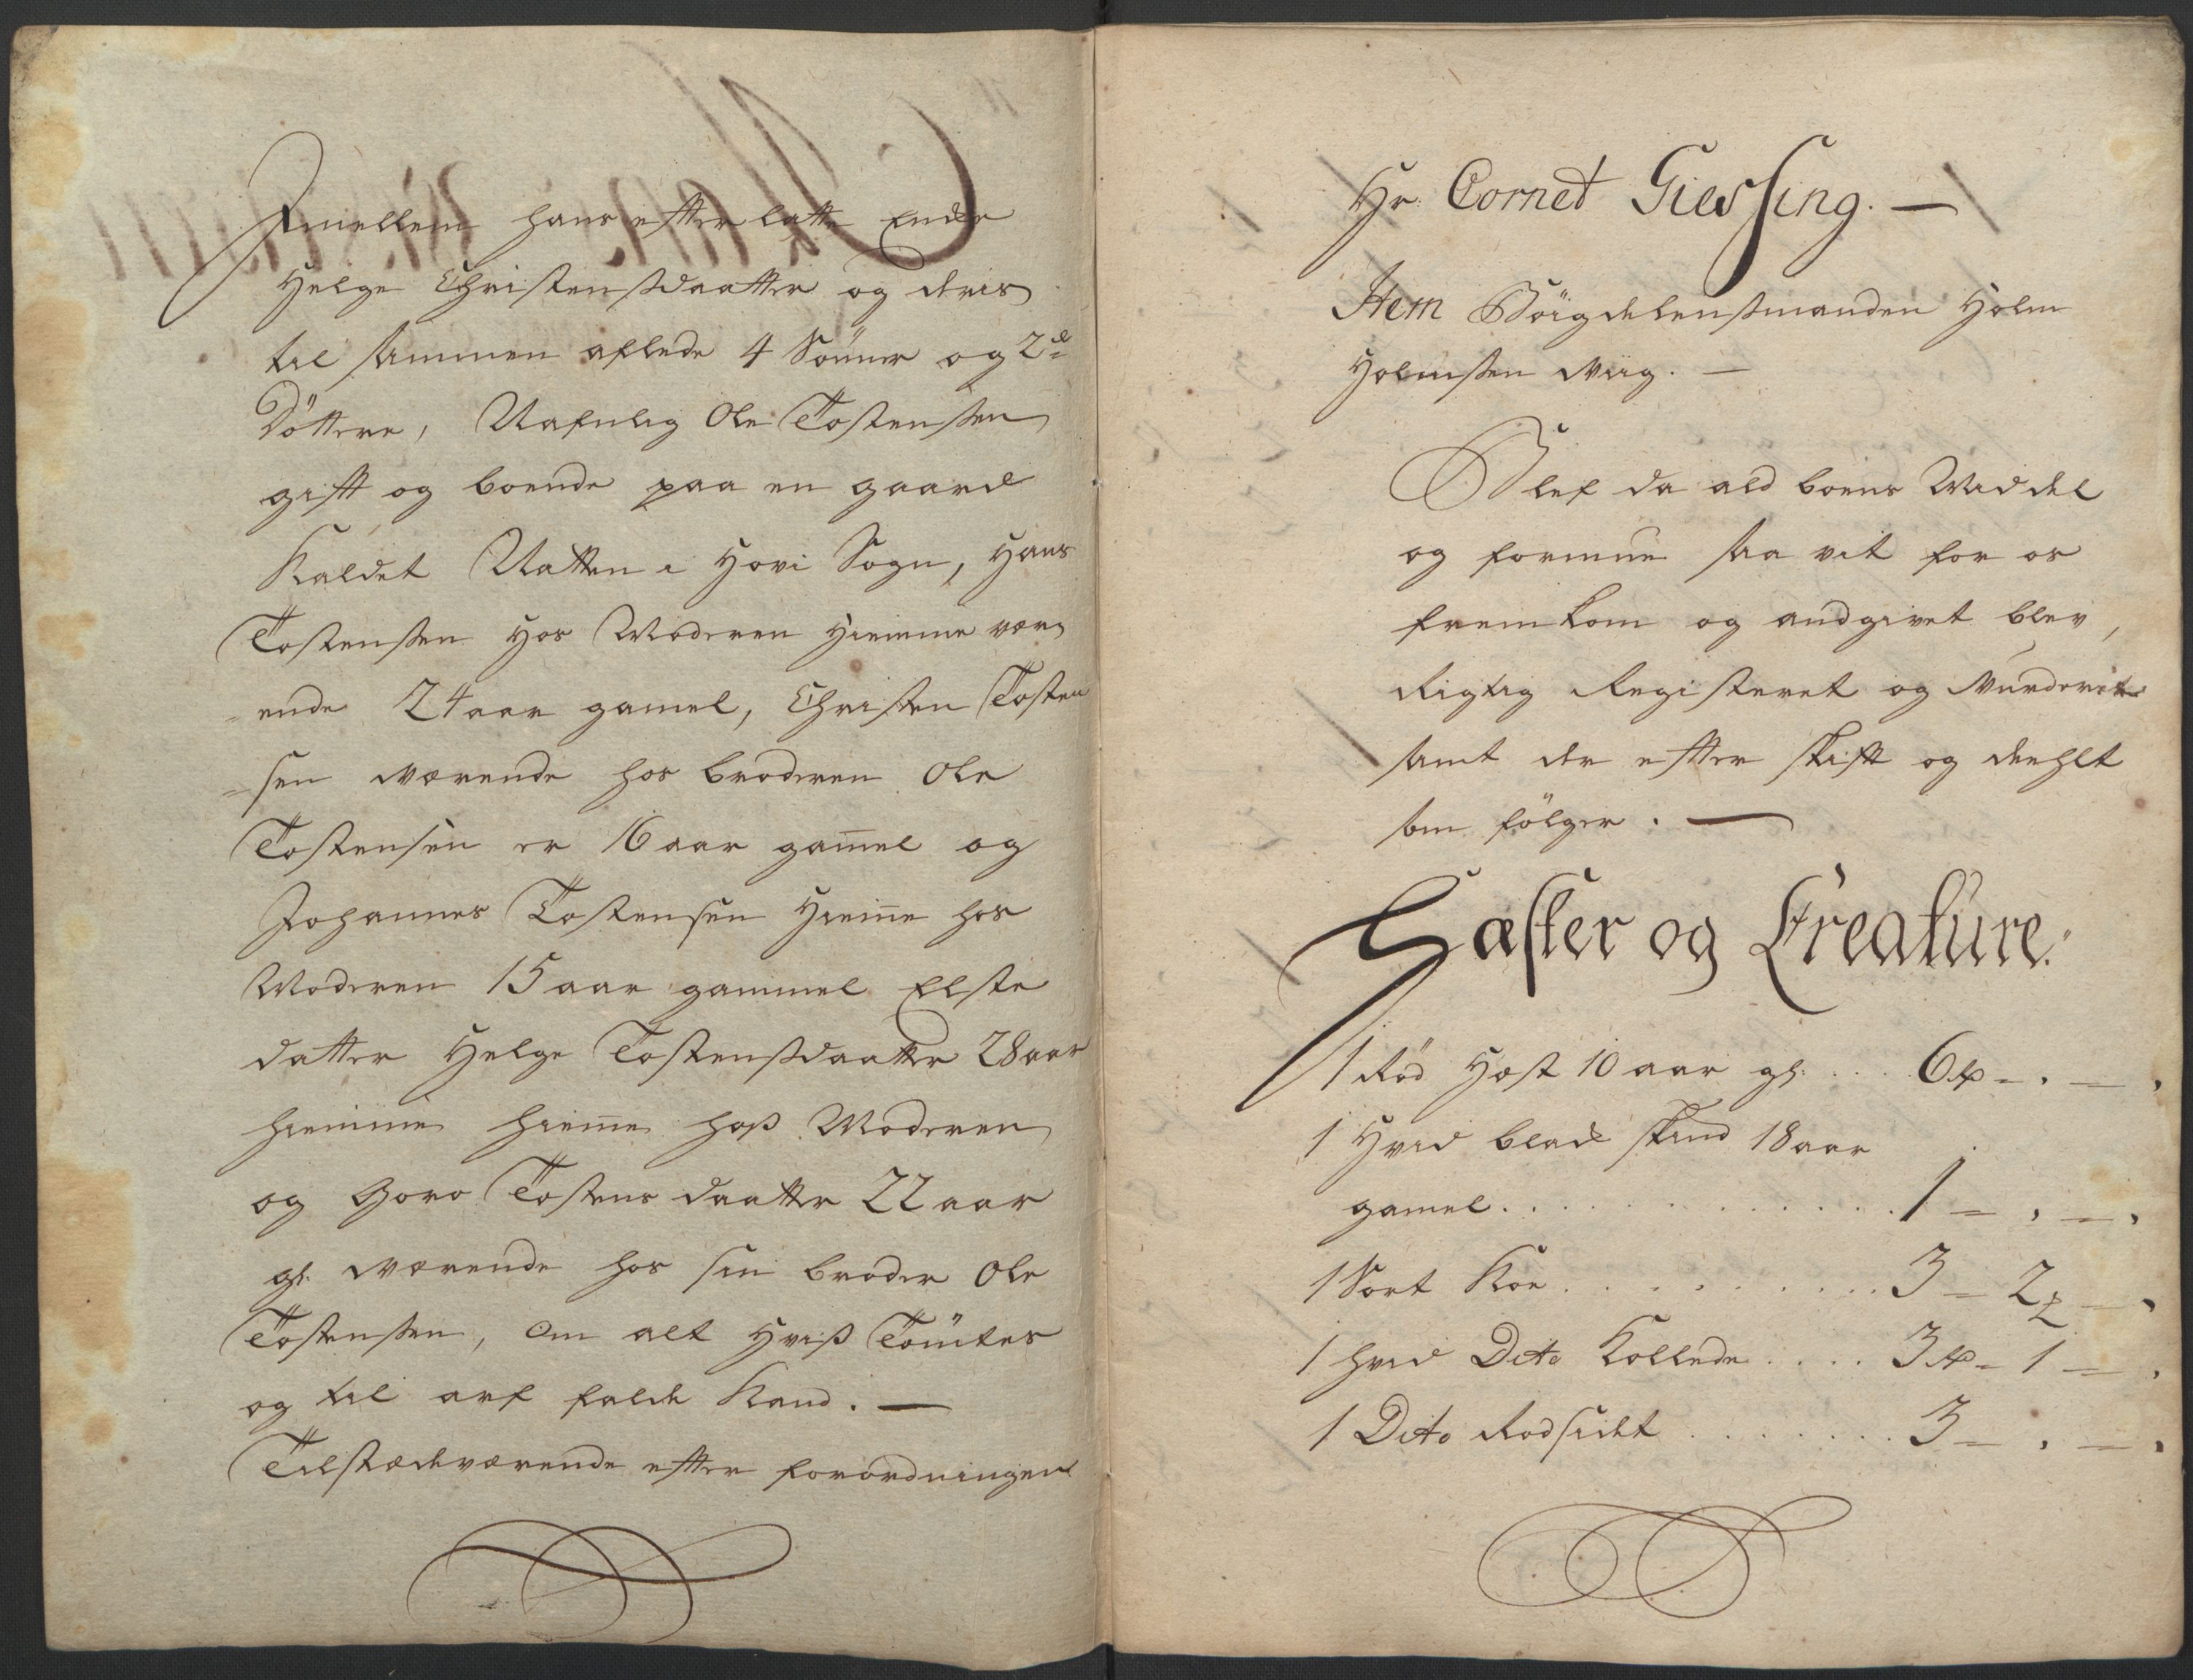 Imellem hans efterlatte Encke
Helge Christensdaatter og deris
til sammen aflede 4 Sönner og 2de
Döttere, Nafnlig Ole Tostenssen
gift og boende paa en gaard
Kaldet Natten i Hovi Sogn, Hans
Tostenssen Hos Moderen Hiemme vær
=ende 24 aar gamel, Christen Tosten
=sen værende hos broderen Ole
Tostensen er 16 aar gam̄el og
Johannes Tostensen Hiem̄e hos
Moderen 15 aar gammel Elste
datter Helge Tostensdaatter 28 aar
hiemme hiem̄e hoß Moderen
og Goro Tostens daatter 22 aar
gl: værende hos sin broder Ole
Tostenssen, Om alt Hviß Tomtes
og til arf falde Kand. —
Tilstædeværende efter forordningen
Hr: Cornet Giessing. —
Item Böigdelensmanden Holm
Holmssen Wiig. —
Blef da ald boens Middel
og formue saa vit for os
fremkom og andgivet blev,
Rigtig Registeret og Vurderit
samt der efter skift og deehlt
som fölger. —
Hæster og Creature:
1 Röd Hæst 10 aar gl: ... 6 rd - . - .
1 Hvid blak skind 18 aar
gamel . . . . . 1 - . - .
1 Sort Koe . . . . . 3 - 2 - .
1 hvid Dito Kollede . . . . 3 rd - 1 - .
1 Dito Rødsidet . . . . . 3 - . - .